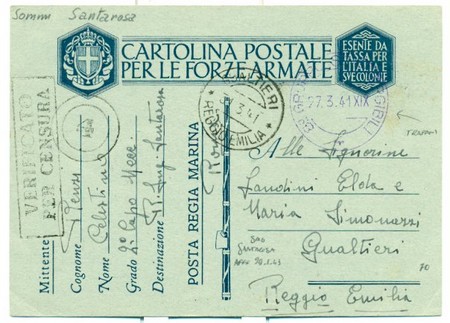 Somm Santarosa
CARTOLINA POSTALE
PER LE FORZE ARMATE
ESENTE DA
TASSA PER
L'ITALIA E
SVE COLONIE
VERIFICATO
PER CENSURA
GUALTIERI
REGGIO EMILIA
27.3.41 XIX
POSTA REGIA MARINA
Mittente
Cognome
Nome Celestino
Grado 2º Capo Mecc.
Destinazione R. Smg. Santarosa
Alle Signorine
Landini Elda e
Maria Simonazzi
Gualtieri
Reggio Emilia
70